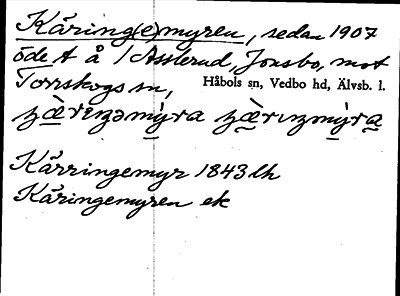 Käring(e)myren, sedan 1907
öde t å / Asslerud, Jonsbo, mot
Torrskogs sn,
Håbols sn, Vedbo hd, Älvsb. l.
Kärringemyr 1843 lh
Käringemyren ek